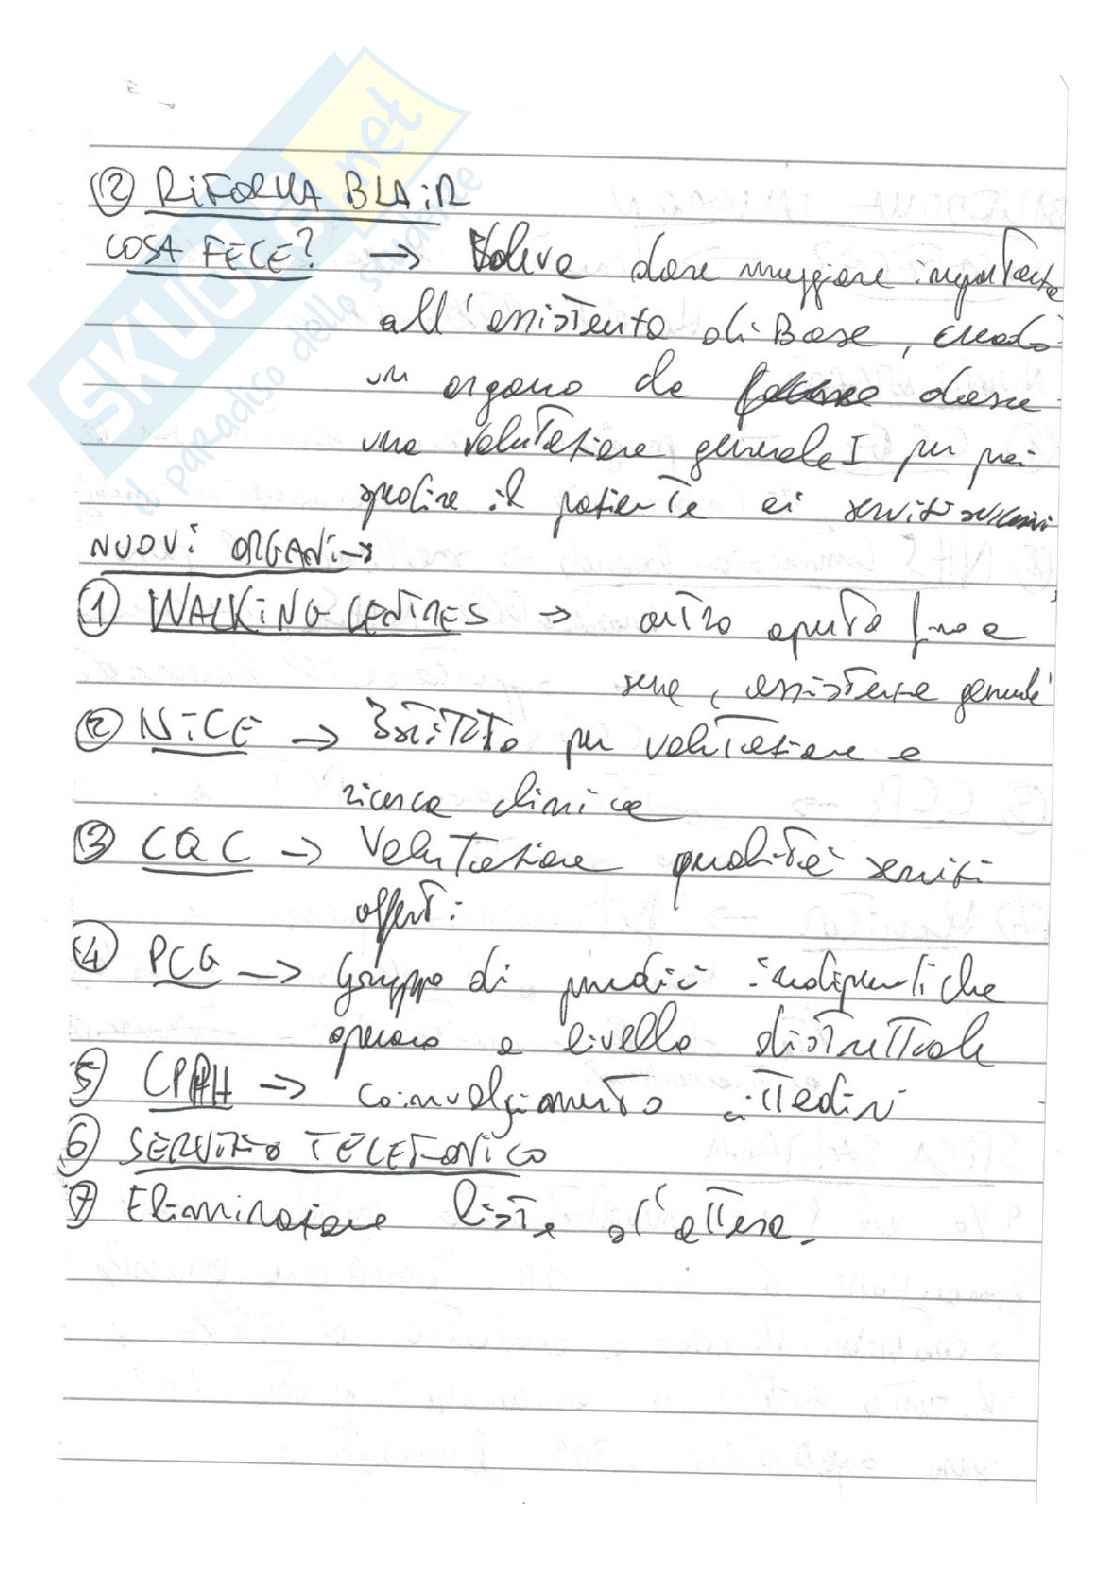 ② RIFORMA BLAIR
COSA FECE? → Voleva dare maggiore importanza
all'assistenza di Base, creando
un organo da dare
una valutazione generale per poi
spedire il paziente ai servizi
NUOVI ORGANI →
① WALKING CENTRES → centro aperto fino a
sera, assistenza generale
② NICE → Istituto per valutazione e
ricerca clinica
③ CQC → Valutazione qualità servizi
offerti
④ PCG → Gruppo di medici indipendenti che
operano a livello distrettuale
⑤ → coinvolgimento cittadini
⑥ SERVIZIO TELEFONICO
⑦ Eliminazione liste d'attesa.
SKUOLA.net
il paradiso dello studente